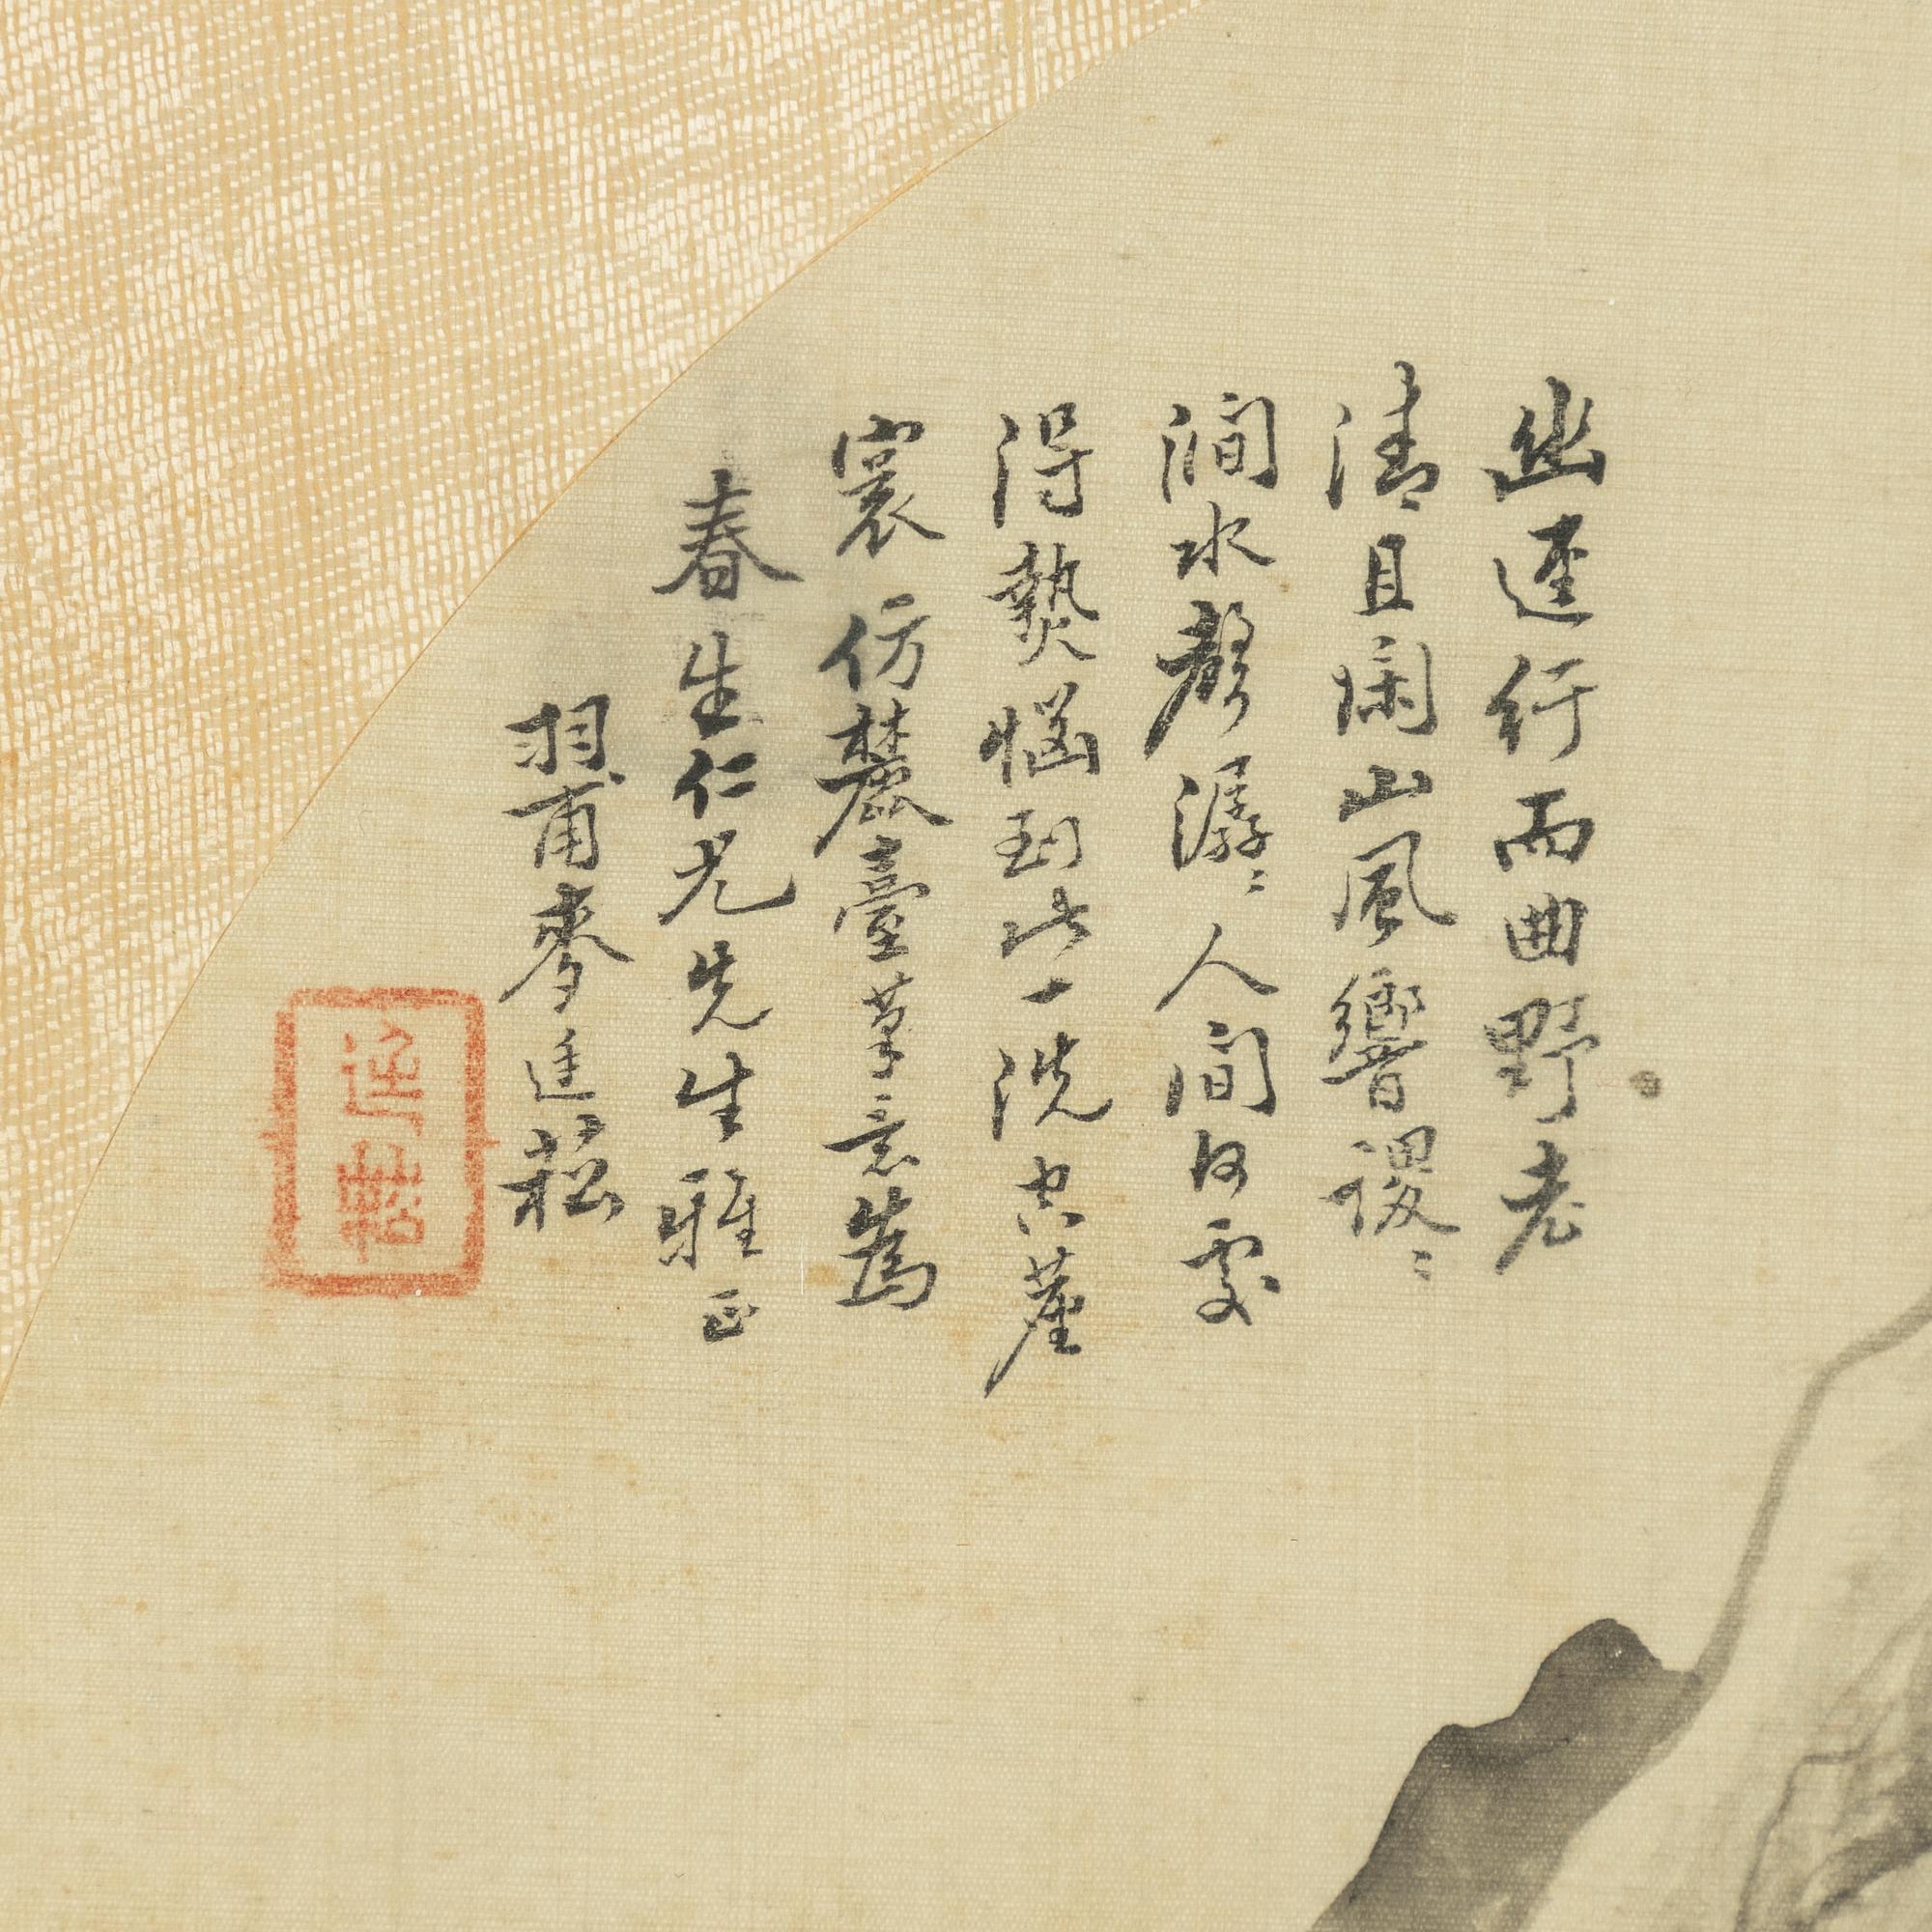 幽逕行而曲野老
清且閑山風響謖〻
澗水聲潺〻人間何處
得熱惱到此一洗空塵
寰 仿麓臺筆意為
春生仁兄先生雅正
羽甫麥廷